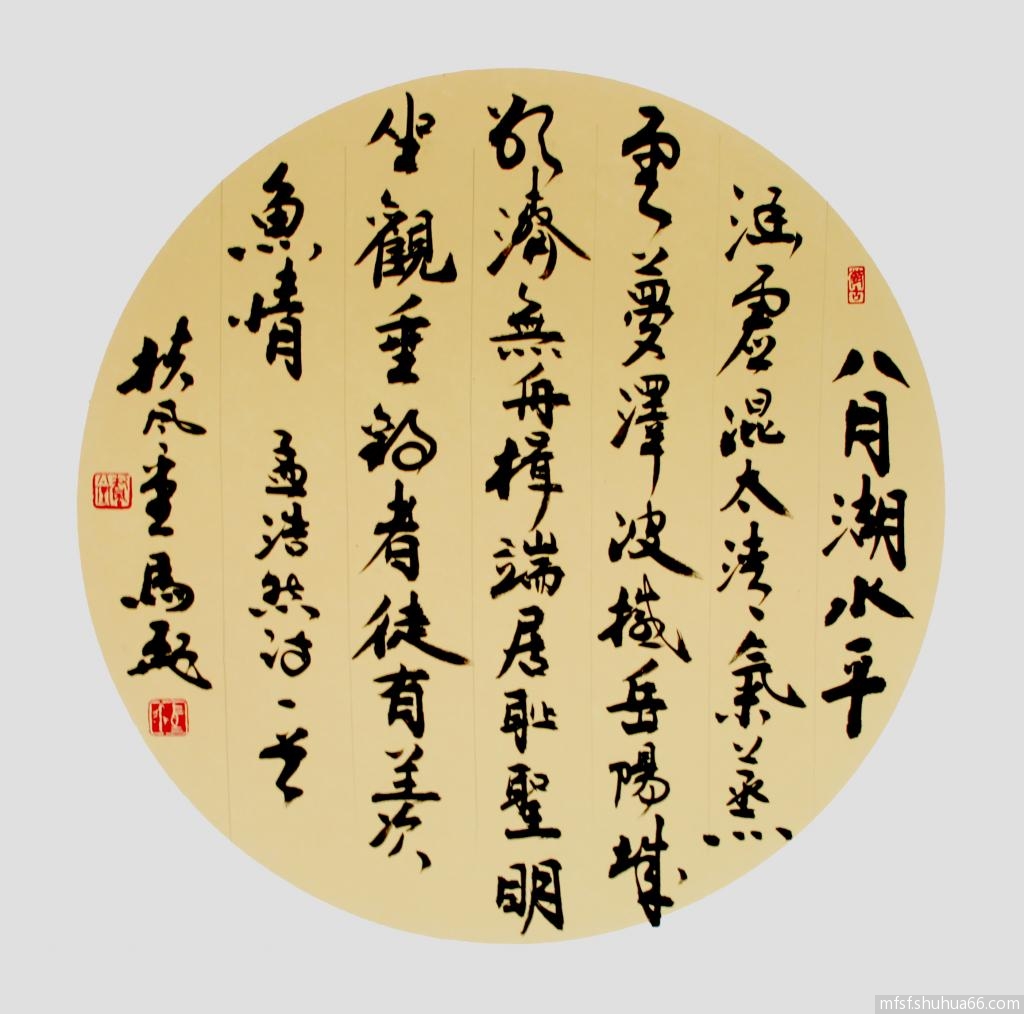 八月湖水平
涵虛混太清氣蒸
雲夢澤波撼岳陽城
欲濟無舟楫端居耻聖明
坐觀垂釣者徒有羨
魚情 孟浩然詩一首
扶風堂馬
mfsf.shuhua66.com